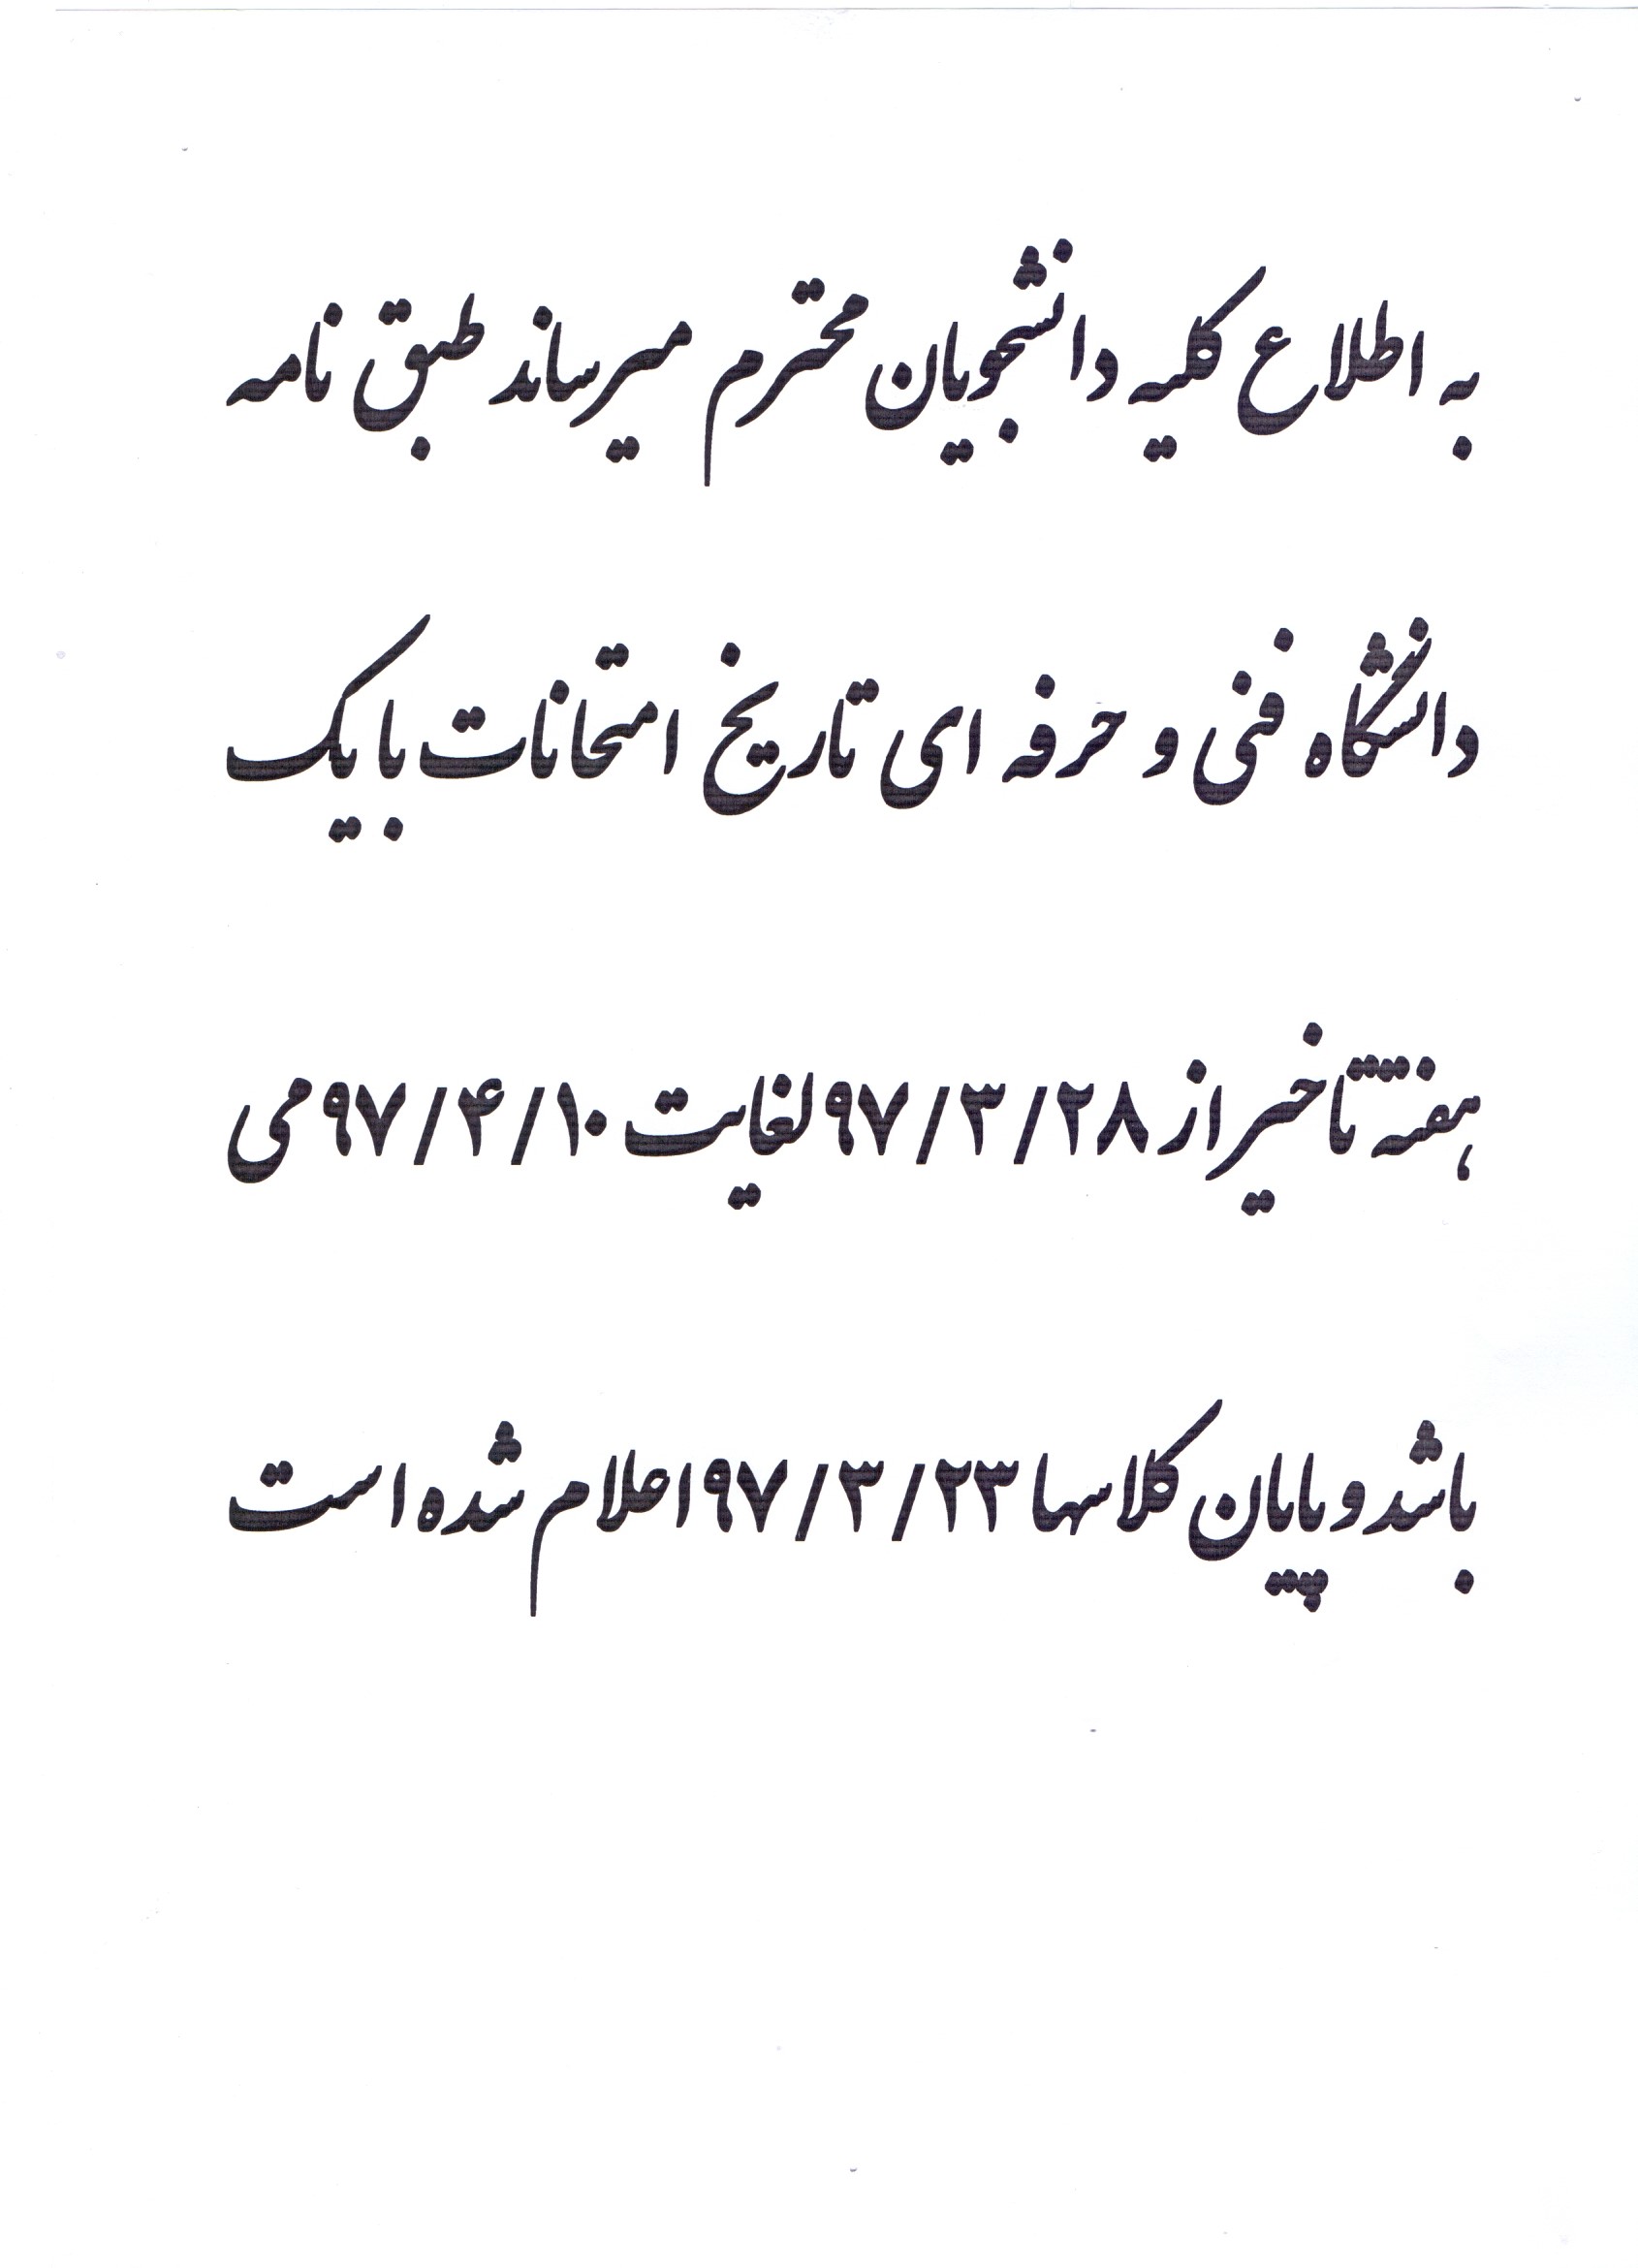 به اطلاع کلیه دانشجویان محترم میرساند طبق نامه
دانشگاه فنی و حرفه ای تاریخ امتحانات با یک
هفته تاخیر از ۹۷/۳/۲۸ لغایت ۹۷/۴/۱۰ می
باشد و پایان کلاسها ۹۷/۳/۲۳ اعلام شده است